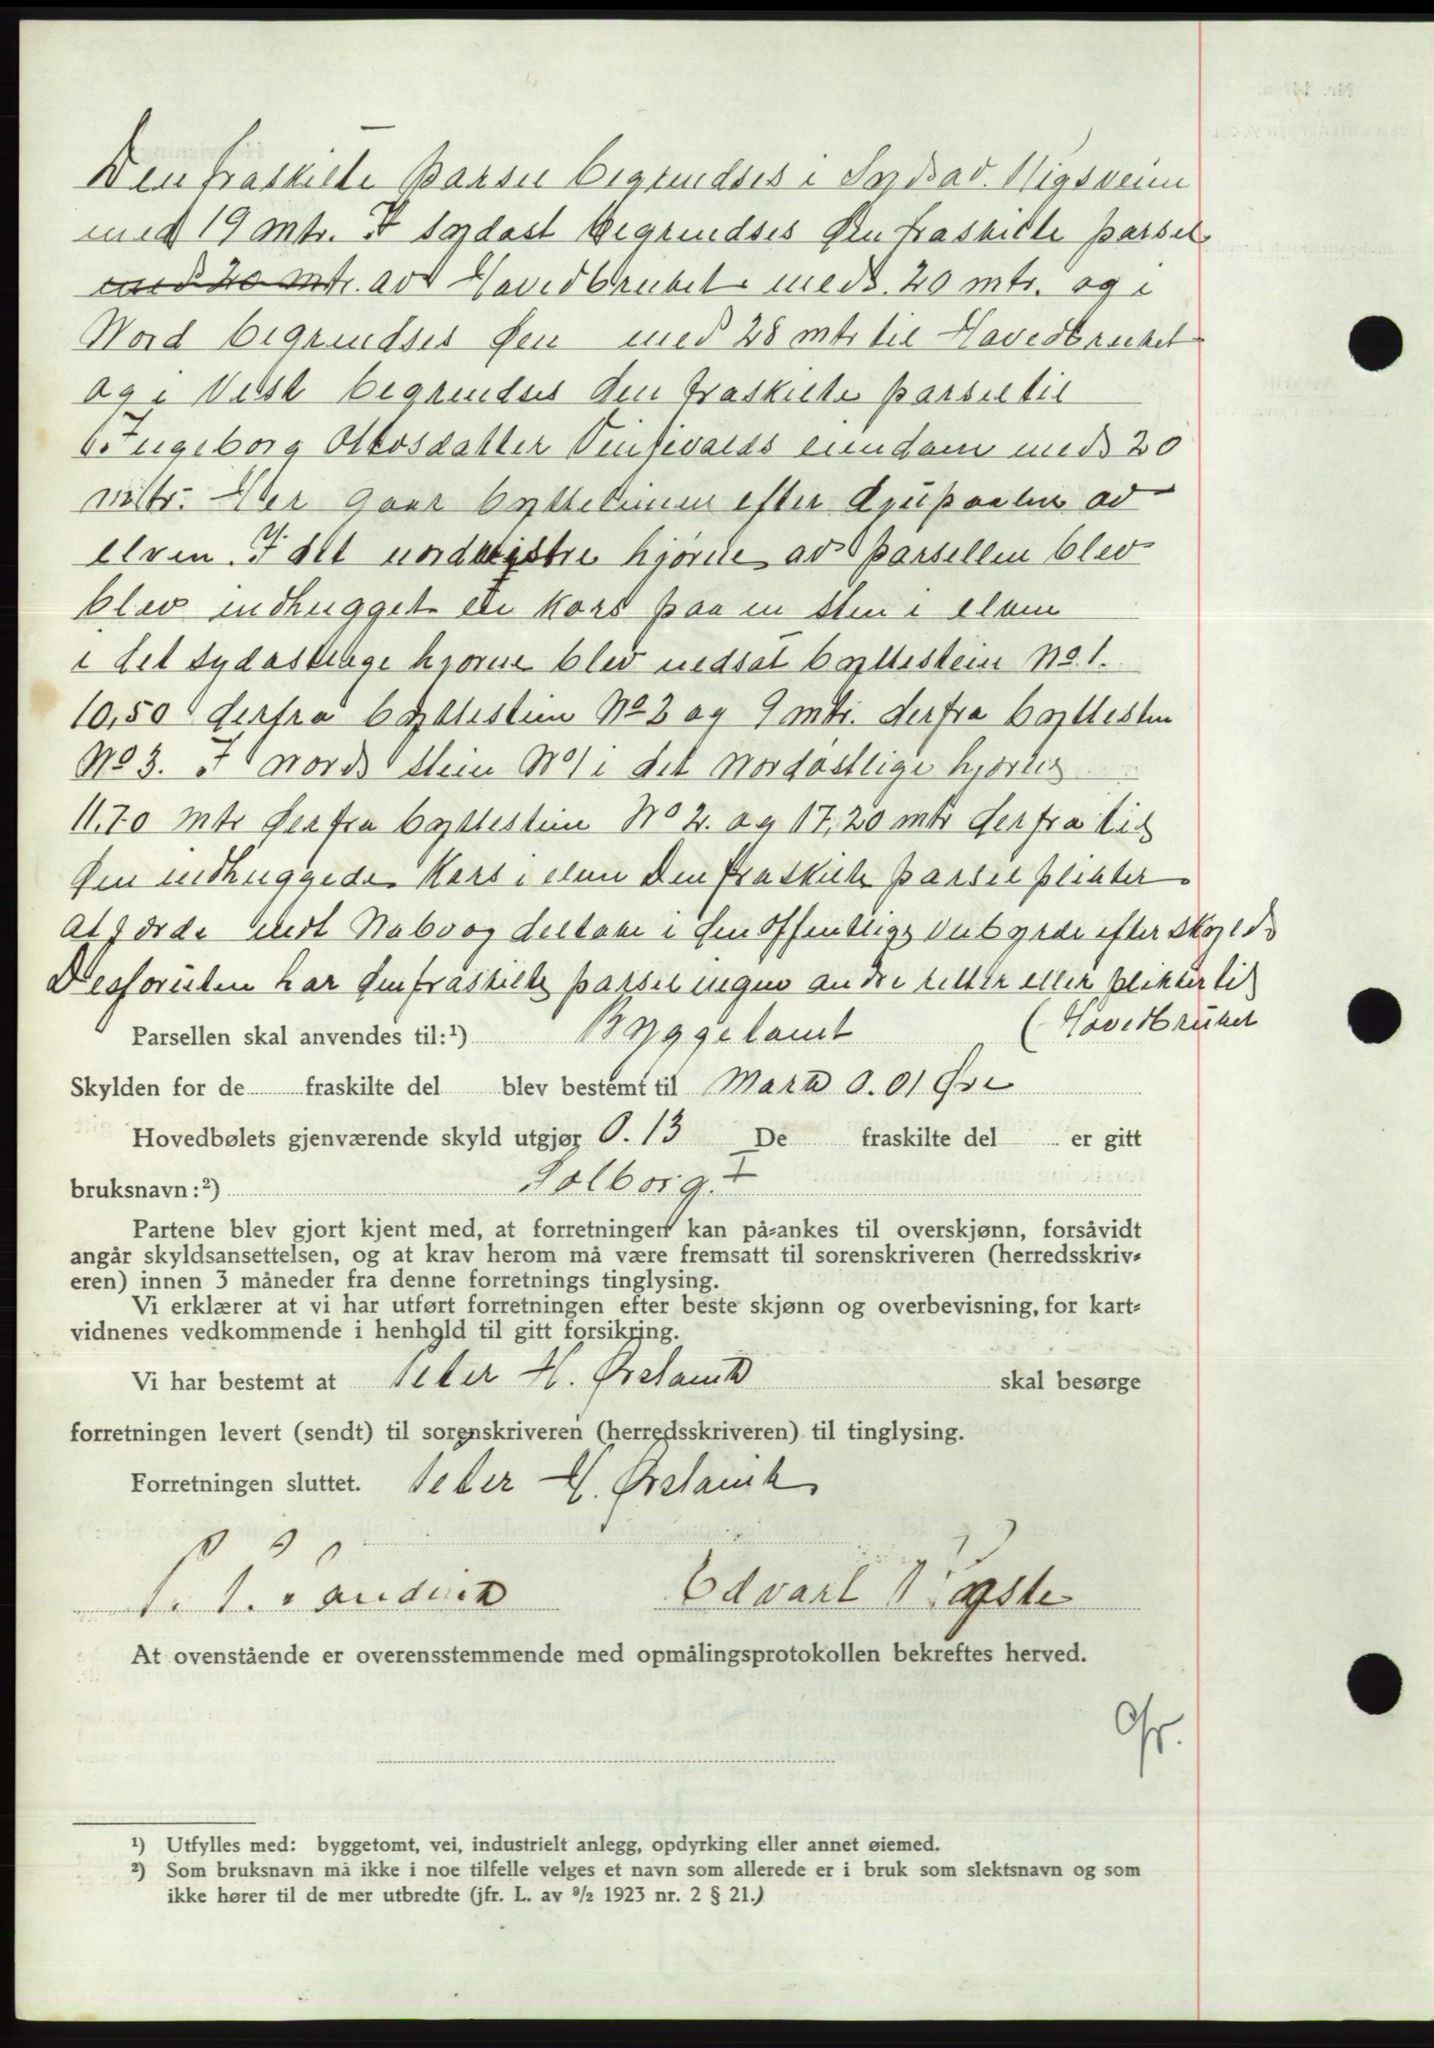 Den fraskilte parsel begrendses i Syd av. Rigsveien
med 19 mtr. I sydøst begrendses den fraskilte parsel
med 20 mtr. av Hovedbruket med 20 mtr. og i
Nord begrendses den med 28 mtr til Hovedbruket
og i Vest begrendses den fraskilte parsel til
Ingeborg Ottosdatter eiendom med 20
mtr. Her gaar byttelinen efter djupaalen av
elven. I det nordvestre hjørne av parsellen blev
blev indhugget en kors paa en sten i elven
i det sydøstlige hjørne blev nedsat byttestein No. 1.
10,50 derfra byttestein No 2 og 9 mtr. derfra byttesten
No 3. I nord stein No 1 i det Nordøstlige hjørne
11.70 mtr derfra byttestein No 2. og 17,20 mtr derfra til
den indhuggede Kors i elven Den fraskilte parsel plikter
at gjærde mot Nabo og deltage i den offentlige utbyrde efter skyld
Desforuten har den fraskilte parsel ingen andre retter eller plikter til
(Hovedbruket
Parsellen skal anvendes til:¹) Byggetomt
Skylden for de fraskilte del blev bestemt til Mark 0.01 Øre
Hovedbølets gjenværende skyld utgjør 0.13 De fraskilte del er gitt
bruksnavn:²) Solborg. I
Partene blev gjort kjent med, at forretningen kan på-ankes til overskjønn, forsåvidt
angår skyldsansettelsen, og at krav herom må være fremsatt til sorenskriveren (herredsskriv-
eren) innen 3 måneder fra denne forretnings tinglysing.
Vi erklærer at vi har utført forretningen efter beste skjønn og overbevisning, for kart-
vidnenes vedkommende i henhold til gitt forsikring.
Vi har bestemt at Peter H. Ørslamd skal besørge
forretningen levert (sendt) til sorenskriveren (herredsskriveren) til tinglysing.
Forretningen sluttet. Peter H. Ørslamk
Edvart
At ovenstående er overensstemmende med opmålingsprotokollen bekreftes herved.
¹) Utfylles med: byggetomt, vei, industrielt anlegg, opdyrking eller annet øiemed.
²) Som bruksnavn må ikke i noe tilfelle velges et navn som allerede er i bruk som slektsnavn og som
ikke hører til de mer utbredte (jfr. L. av ⁹/₂ 1923 nr. 2 § 21.)